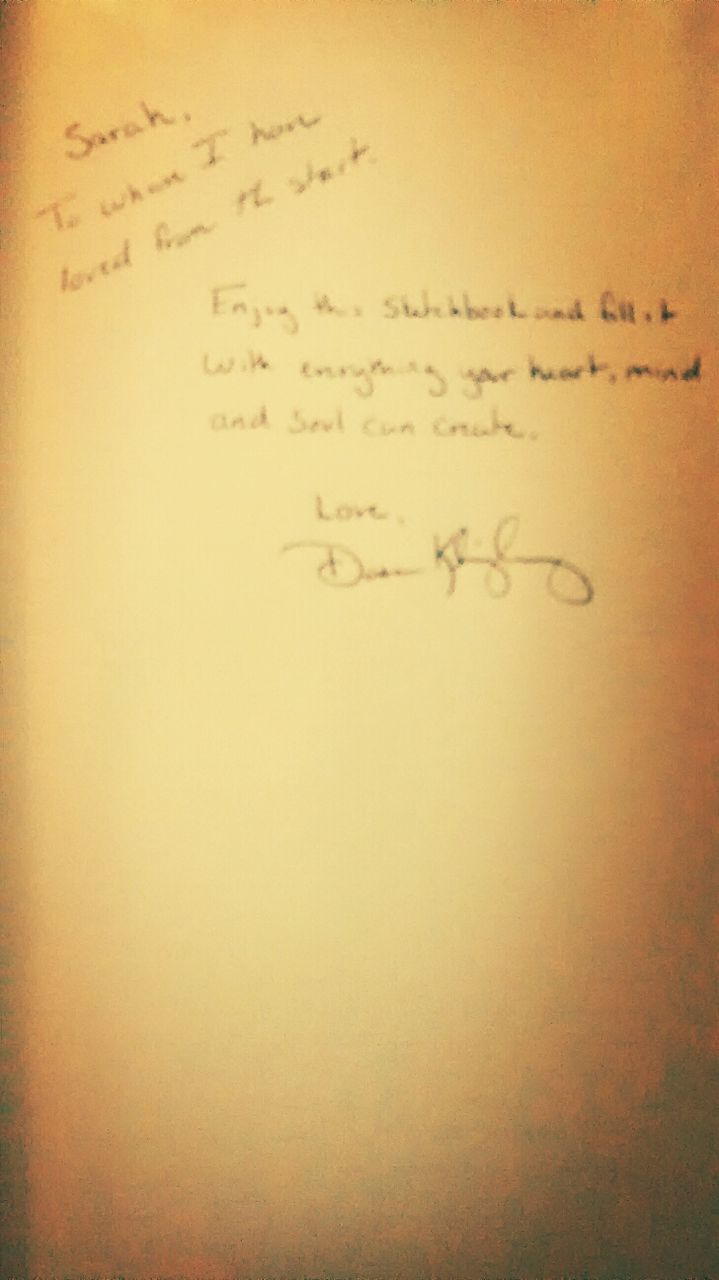 Sarah,
To whom I have
loved from the start.
Enjoy this Sketchbook and fill it
With everything your heart, mind
and Soul can create.
Love,